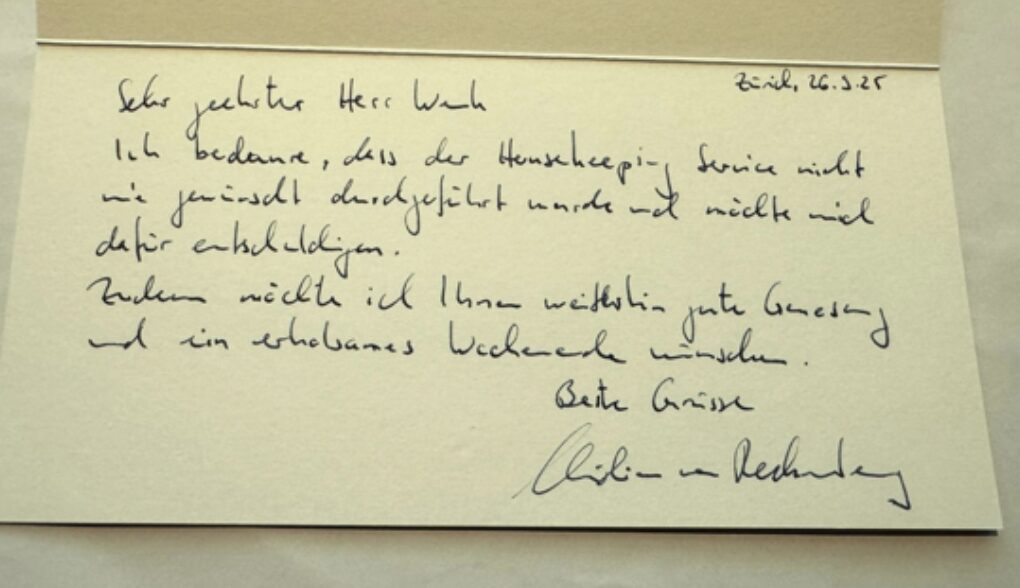 Zürich, 26.9.25
Sehr geehrter Herr
Ich bedaure, dass der Housekeeping Service nicht
wie gewünscht durchgeführt wurde und möchte mich
dafür entschuldigen.
Zudem möchte ich Ihnen weiterhin gute Genesung
und ein erholsames Wochenende wünschen.
Beste Grüsse
Christian von